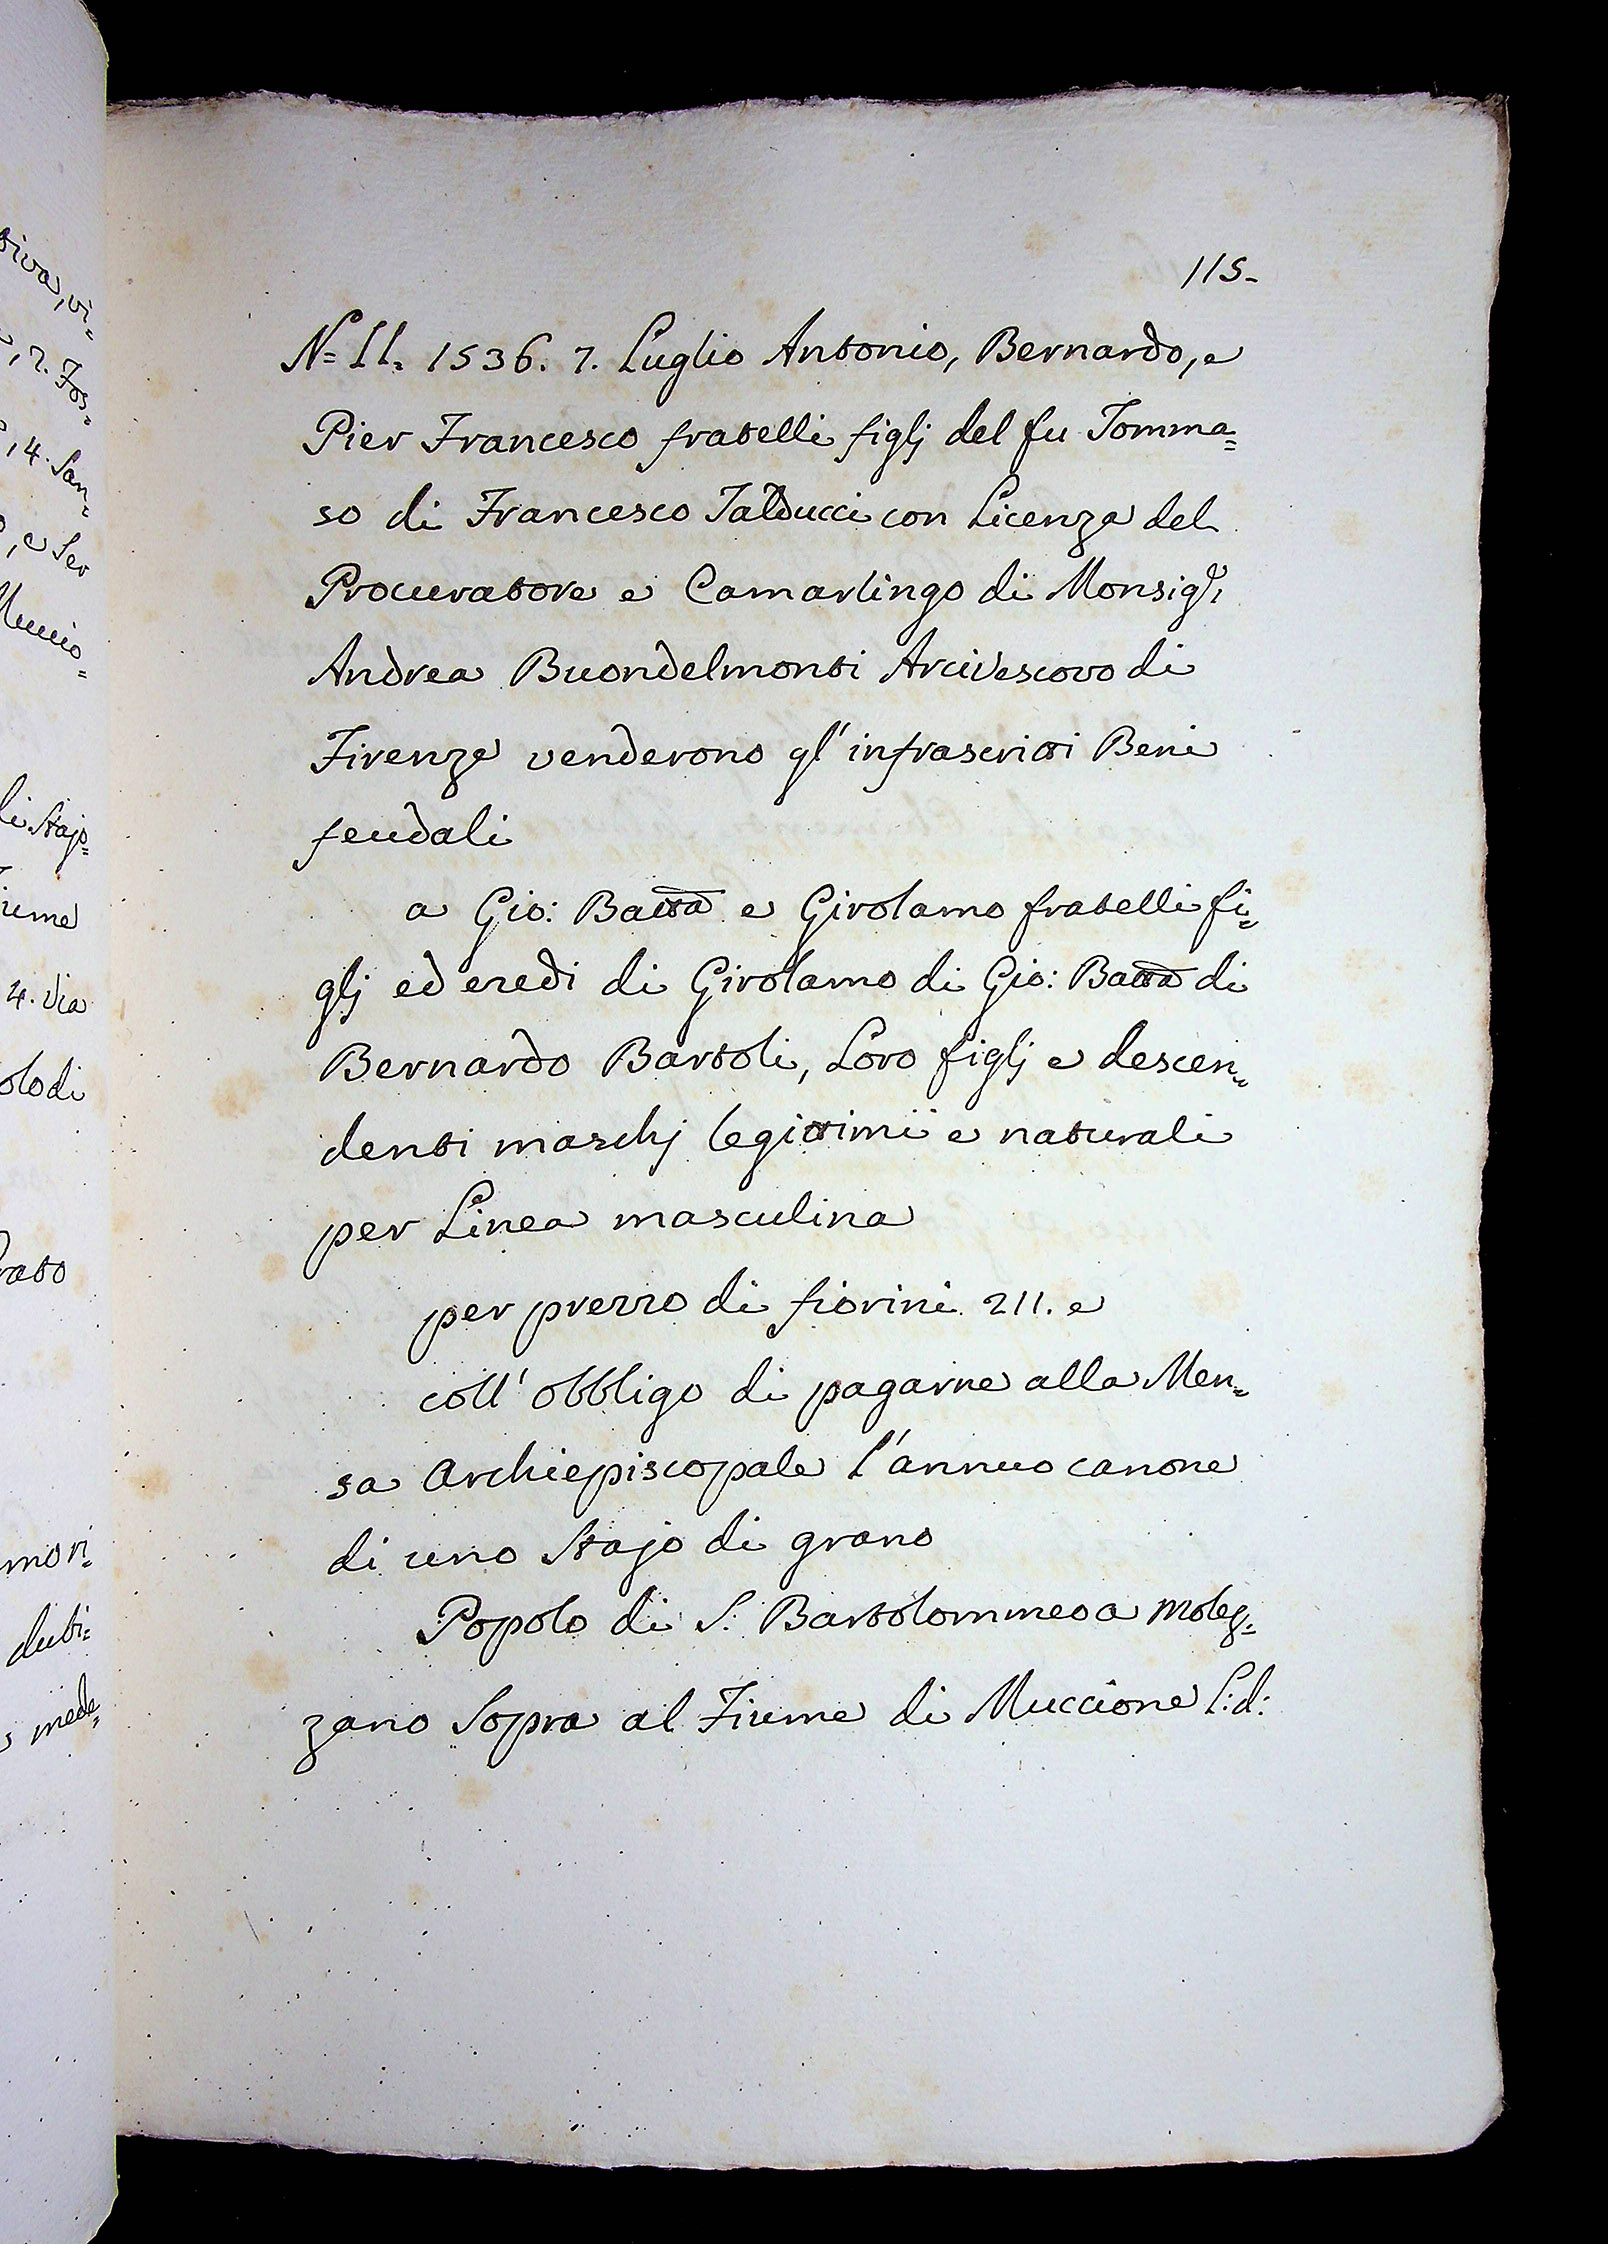 115-
N= 11. 1536. 7. Luglio Antonio, Bernardo, e
Pier Francesco fratelli figlj del fu Tomma=
so di Francesco Talducci con Licenza del
Procuratore e Camarlingo di Monsig.r
Andrea Buondelmonti Arcivescovo di
Firenze venderono gl' infrascritti Beni
feudali
a Gio: Batta e Girolamo fratelli fi=
glj ed eredi di Girolamo di Gio: Batta di
Bernardo Bartoli, Loro figlj e descen=
denti maschj legittimi e naturali
per Linea masculina
per prezzo di fiorini 211. e
coll' obbligo di pagarne alla Men=
sa Archiepiscopale l'annuo canone
di uno Stajo di grano
Popolo di S. Bartolommeo a Molez=
zano Sopra al Fiume di Muccione L: d: